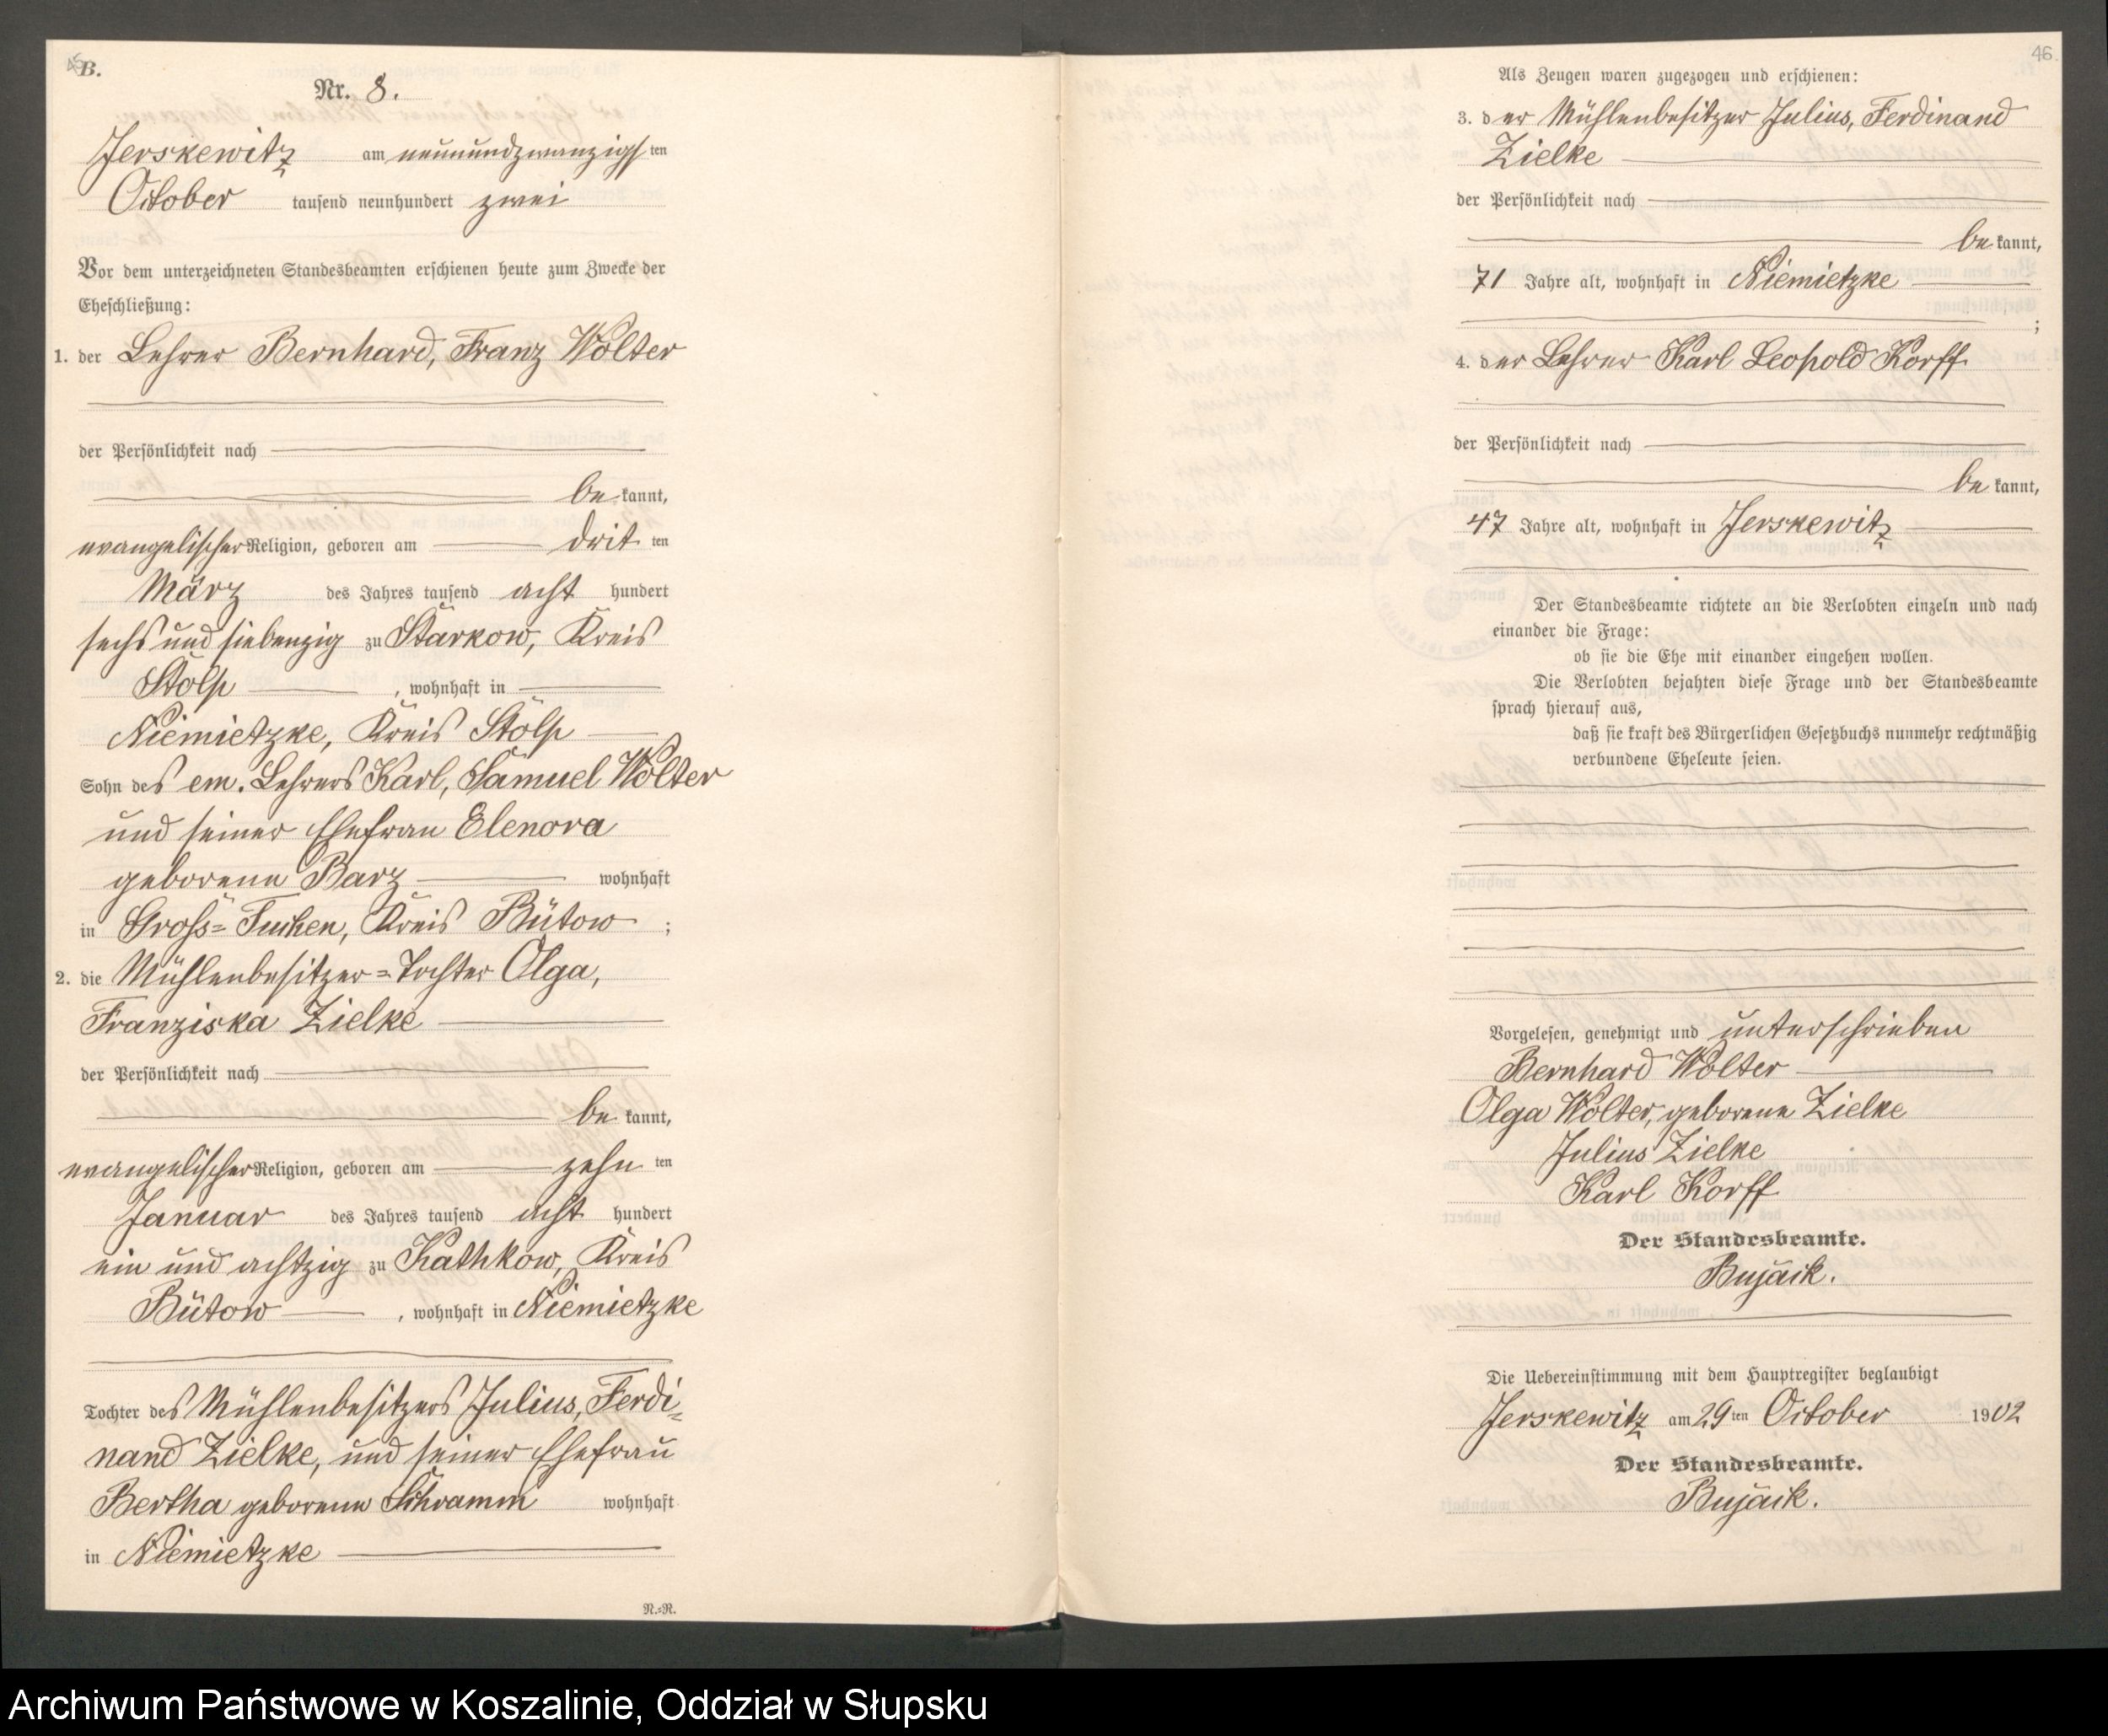 B.
Nr. 8.
Jerskewitz am neunundzwanzigsten
October tausend neunhundert zwei
Vor dem unterzeichneten Standesbeamten erschienen heute zum Zwecke der
Eheschließung:
1. der Lehrer Bernhard, Franz Wolter
der Persönlichkeit nach
be kannt,
evangelischer Religion, geboren am dritten
März des Jahres tausend acht hundert
sechs und siebenzig zu Starkow, Kreis
Stolp, wohnhaft in
Niemietzke, Kreis Stolp
Sohn des em. Lehrers Karl, Samuel Wolter
und seiner Ehefrau Elenora
geborene Barz wohnhaft
in Gross=Tuchen, Kreis Bütow;
2. die Mühlenbesitzer=Tochter Olga,
Franziska Zielke
der Persönlichkeit nach
be kannt,
evangelischer Religion, geboren am zehnten
Januar des Jahres tausend acht hundert
ein und achtzig zu Kathkow, Kreis
Bütow, wohnhaft in Niemietzke
Tochter des Mühlenbesitzers Julius, Ferdi=
nand Zielke, und seiner Ehefrau
Bertha geborene Schramm wohnhaft
in Niemietzke
N.=N.
46.
Als Zeugen waren zugezogen und erschienen:
3. der Mühlenbesitzer Julius, Ferdinand
Zielke
der Persönlichkeit nach
be kannt,
71 Jahre alt, wohnhaft in Niemietzke
;
4. der Lehrer Karl Leopold Korff
der Persönlichkeit nach
be kannt,
47 Jahre alt, wohnhaft in Jerskewitz
Der Standesbeamte richtete an die Verlobten einzeln und nach
einander die Frage:
ob sie die Ehe mit einander eingehen wollen.
Die Verlobten bejahten diese Frage und der Standesbeamte
sprach hierauf aus,
daß sie kraft des Bürgerlichen Gesetzbuchs nunmehr rechtmäßig
verbundene Eheleute seien.
Vorgelesen, genehmigt und unterschrieben
Bernhard Wolter
Olga Wolter, geborene Zielke
Julius Zielke
Karl Korff
Der Standesbeamte.
Bujack.
Die Uebereinstimmung mit dem Hauptregister beglaubigt
Jerskewitz am 29ten October 1902
Der Standesbeamte.
Bujack.
Archiwum Państwowe w Koszalinie, Oddział w Słupsku